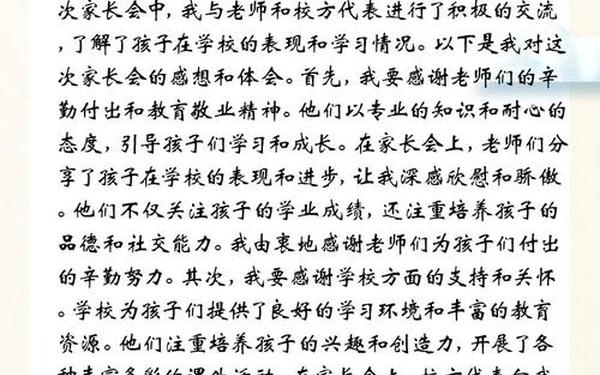 次家长会中，我与老师和校方代表进行了积极的交流
，了解了孩子在学校的表现和学习情况。以下是我对这
次家长会的感想和体会。首先，我要感谢老师们的辛
勤付出和教育敬业精神。他们以专业的知识和耐心的
态度，引导孩子们学习和成长。在家长会上，老师们分
享了孩子在学校的表现和进步，让我深感欣慰和骄傲
。他们不仅关注孩子的学业成绩，还注重培养孩子的
品德和社交能力。我由衷地感谢老师们为孩子们付出
的辛勤努力。其次，我要感谢学校方面的支持和关怀
。学校为孩子们提供了良好的学习环境和丰富的教育
资源。他们注重培养孩子的兴趣和创造力，开展了各
种丰富多彩的课外活动。在家长会上，校方代表向我